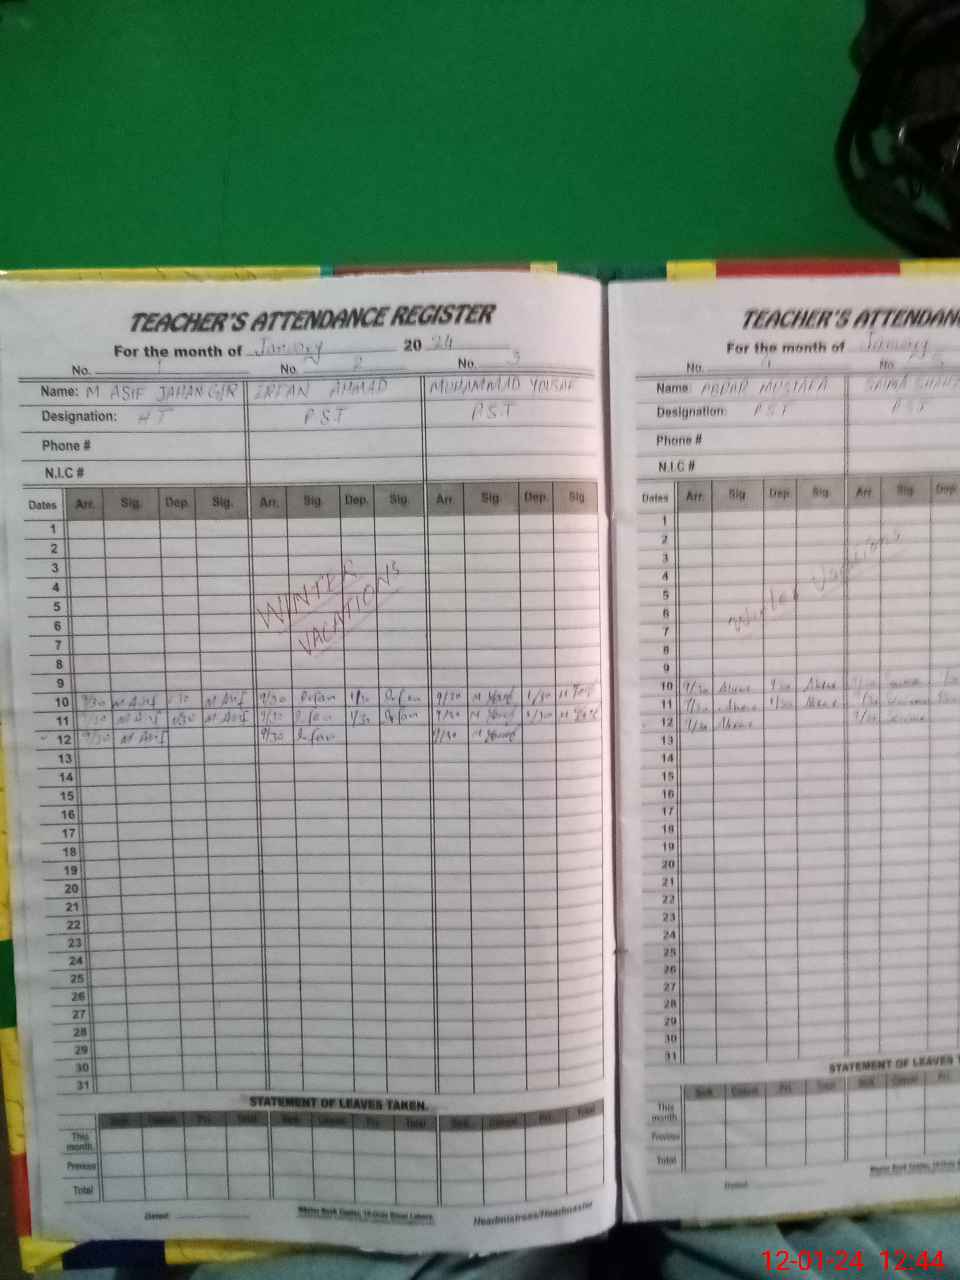 TEACHER'S ATTENDANCE REGISTER
For the month of January 2024
No. 1 No. 2 No. 3
Name: M ASIF JAHANGIR IRFAN AHMAD MUHAMMAD YOUSAF
Designation: HT P.S.T P.S.T
Phone #
N.I.C #
Dates Arr. Sig. Dep. Sig. Arr. Sig. Dep. Sig. Arr. Sig. Dep. Sig.
1
2
3
4
5
6
7
8
9
WINTER
VACATIONS
10 9/30 M Asif 1/30 M Asif 9/30 Irfan 1/30 Irfan 9/30 M Yousf 1/30 M Yousf
11 9/30 M Asif 1/30 M Asif 9/30 Irfan 1/30 Irfan 9/30 M Yousf 1/30 M Yousf
12 9/30 M Asif 9/30 Irfan 9/30 M Yousf
13
14
15
16
17
18
19
20
21
22
23
24
25
26
27
28
29
30
31
STATEMENT OF LEAVES TAKEN.
Sick Casual Pri. Total Sick Casual Pri. Total Sick Casual Pri. Total
This month
Previous
Total
Dated:
Headmistress/Headmaster
TEACHER'S ATTENDAN
For the month of January
No. 4 No. 5
Name: ABRAR MUSTAFA SAIMA
Designation: PST PST
Phone #
N.I.C #
Dates Arr. Sig. Dep. Sig. Arr. Sig. Dep.
1
2
3
4
5
6
7
8
9
Winter Vacations
10 9/30 1/30
11 9/30 1/30
12 9/30
13
14
15
16
17
18
19
20
21
22
23
24
25
26
27
28
29
30
31
STATEMENT OF LEAVES
Sick Casual Pri. Total Sick Casual Pri.
This month
Previous
Total
Dated:
12-01-24 12:44